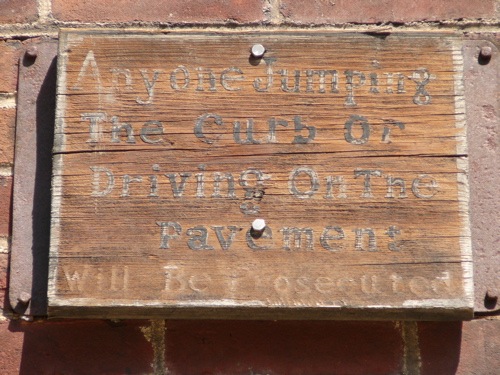 Anyone Jumping
The Curb Or
Driving On The
Pavement
Will Be Prosecuted